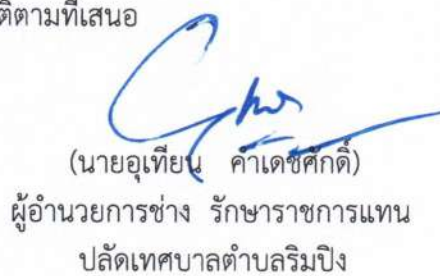 ติตามที่เสนอ
(นายอุเทียน คำเดชศักดิ์)
ผู้อำนวยการช่าง รักษาราชการแทน
ปลัดเทศบาลตำบลริมปิง